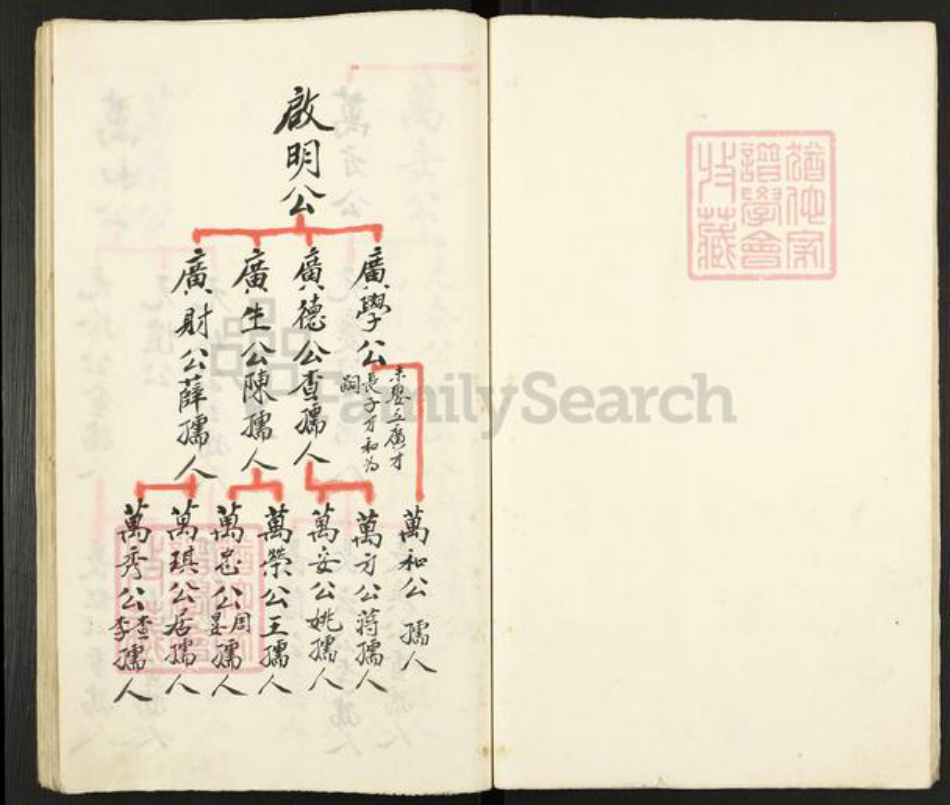 猶他家
譜學會
收藏
啟明公
廣學公
未娶立廣才
長子才和為
嗣
廣德公查孺人
廣生公陳孺人
廣財公薛孺人
萬和公 孺人
萬方公蔣孺人
萬安公姚孺人
萬榮公王孺人
萬忠公周晏孺人
萬琪公居孺人
萬秀公查李孺人
FamilySearch